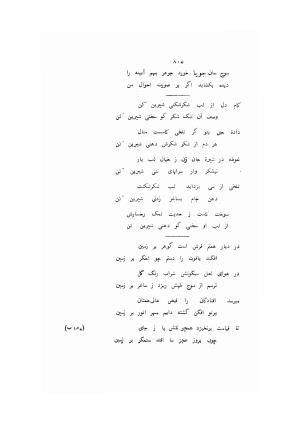 ۸۰۵
موج سان جویا خورد جوهر بهم آیینه را
دیده بگشاید اگر بر صورت احوال من
کام دل از لب شکرشکنی شیرین کن
وصف آن تنگ شکر گو سخنی شیرین کن
داده حق بتو گر تلخی کامست مدال
هر دم از شکر شکرش دهنی شیرین کن
غوطه در شیرهٔ جان زن ز خیال لب یار
نیشکر وار سراپای تنی شیرین کن
تلخی از می بزداید لب شکرشکنت
دهن جام بساغر زدنی شیرین کن
سوخت کامت ز حدیث نمک رخسارش
از لب او سخنی گو دهنی شیرین کن
در دیار همتم فرش است گوهر بر زمین
افکند یاقوت را دستم چو اخگر بر زمین
در هوای لعل میگونش شراب رنگ گل
ترسم از موج طپش ریزد ز ساغر بر زمین
میرسد افتادگان را فیض عالی‌همتان
پرتو افکن گشته دایم مهر انور بر زمین
تا قیامت برنخیزد همچو نقش پا ز جای
چون بروز عجز ما افتد ستمگر بر زمین